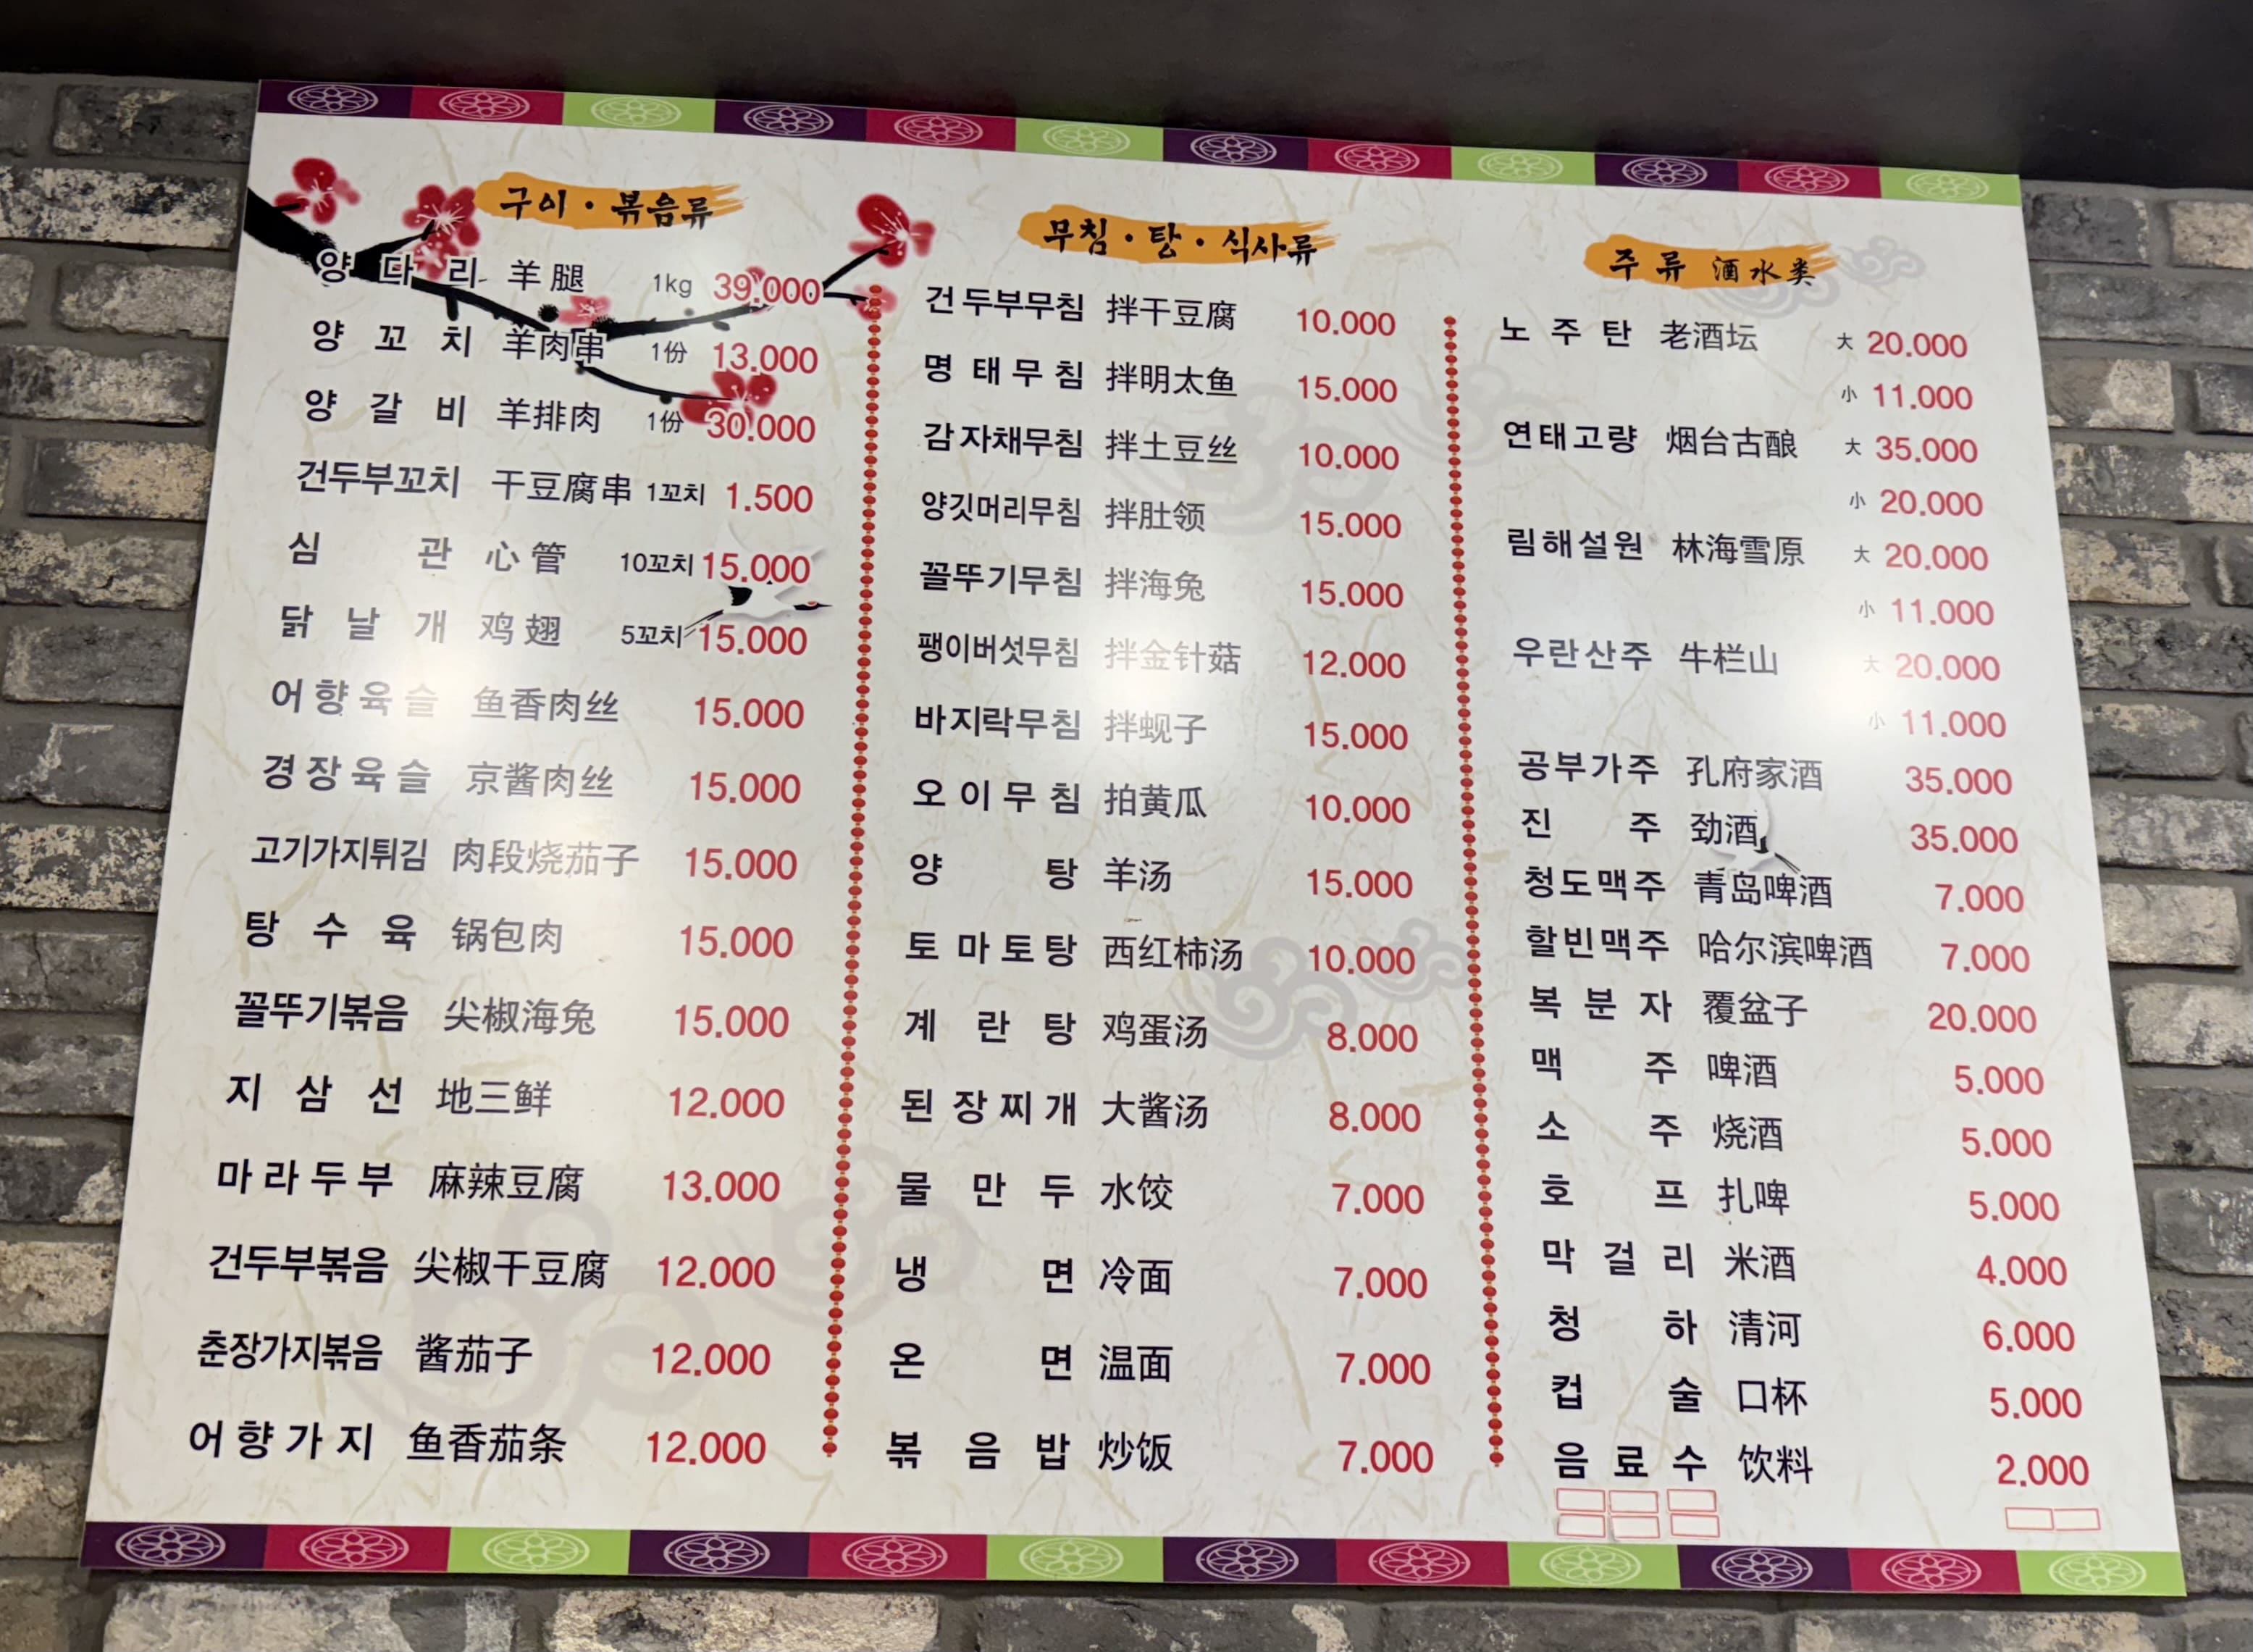 구이·볶음류
양다리 羊腿 1kg 39.000
양꼬치 羊肉串 1份 13.000
양갈비 羊排肉 1份 30.000
건두부꼬치 干豆腐串 1꼬치 1.500
심관 心管 10꼬치 15.000
닭날개 鸡翅 5꼬치 15.000
어향육슬 鱼香肉丝 15.000
경장육슬 京酱肉丝 15.000
고기가지튀김 肉段烧茄子 15.000
탕수육 锅包肉 15.000
꼴뚜기볶음 尖椒海兔 15.000
지삼선 地三鲜 12.000
마라두부 麻辣豆腐 13.000
건두부볶음 尖椒干豆腐 12.000
춘장가지볶음 酱茄子 12.000
어향가지 鱼香茄条 12.000
무침·탕·식사류
건두부무침 拌干豆腐 10.000
명태무침 拌明太鱼 15.000
감자채무침 拌土豆丝 10.000
양깃머리무침 拌肚领 15.000
꼴뚜기무침 拌海兔 15.000
팽이버섯무침 拌金针菇 12.000
바지락무침 拌蚬子 15.000
오이무침 拍黄瓜 10.000
양탕 羊汤 15.000
토마토탕 西红柿汤 10.000
계란탕 鸡蛋汤 8.000
된장찌개 大酱汤 8.000
물만두 水饺 7.000
냉면 冷面 7.000
온면 温面 7.000
볶음밥 炒饭 7.000
주류 酒水类
노주탄 老酒坛 大 20.000
小 11.000
연태고량 烟台古酿 大 35.000
小 20.000
림해설원 林海雪原 大 20.000
小 11.000
우란산주 牛栏山 大 20.000
小 11.000
공부가주 孔府家酒 35.000
진주 劲酒 35.000
청도맥주 青岛啤酒 7.000
할빈맥주 哈尔滨啤酒 7.000
복분자 覆盆子 20.000
맥주 啤酒 5.000
소주 烧酒 5.000
호프 扎啤 5.000
막걸리 米酒 4.000
청하 清河 6.000
컵술 口杯 5.000
음료수 饮料 2.000